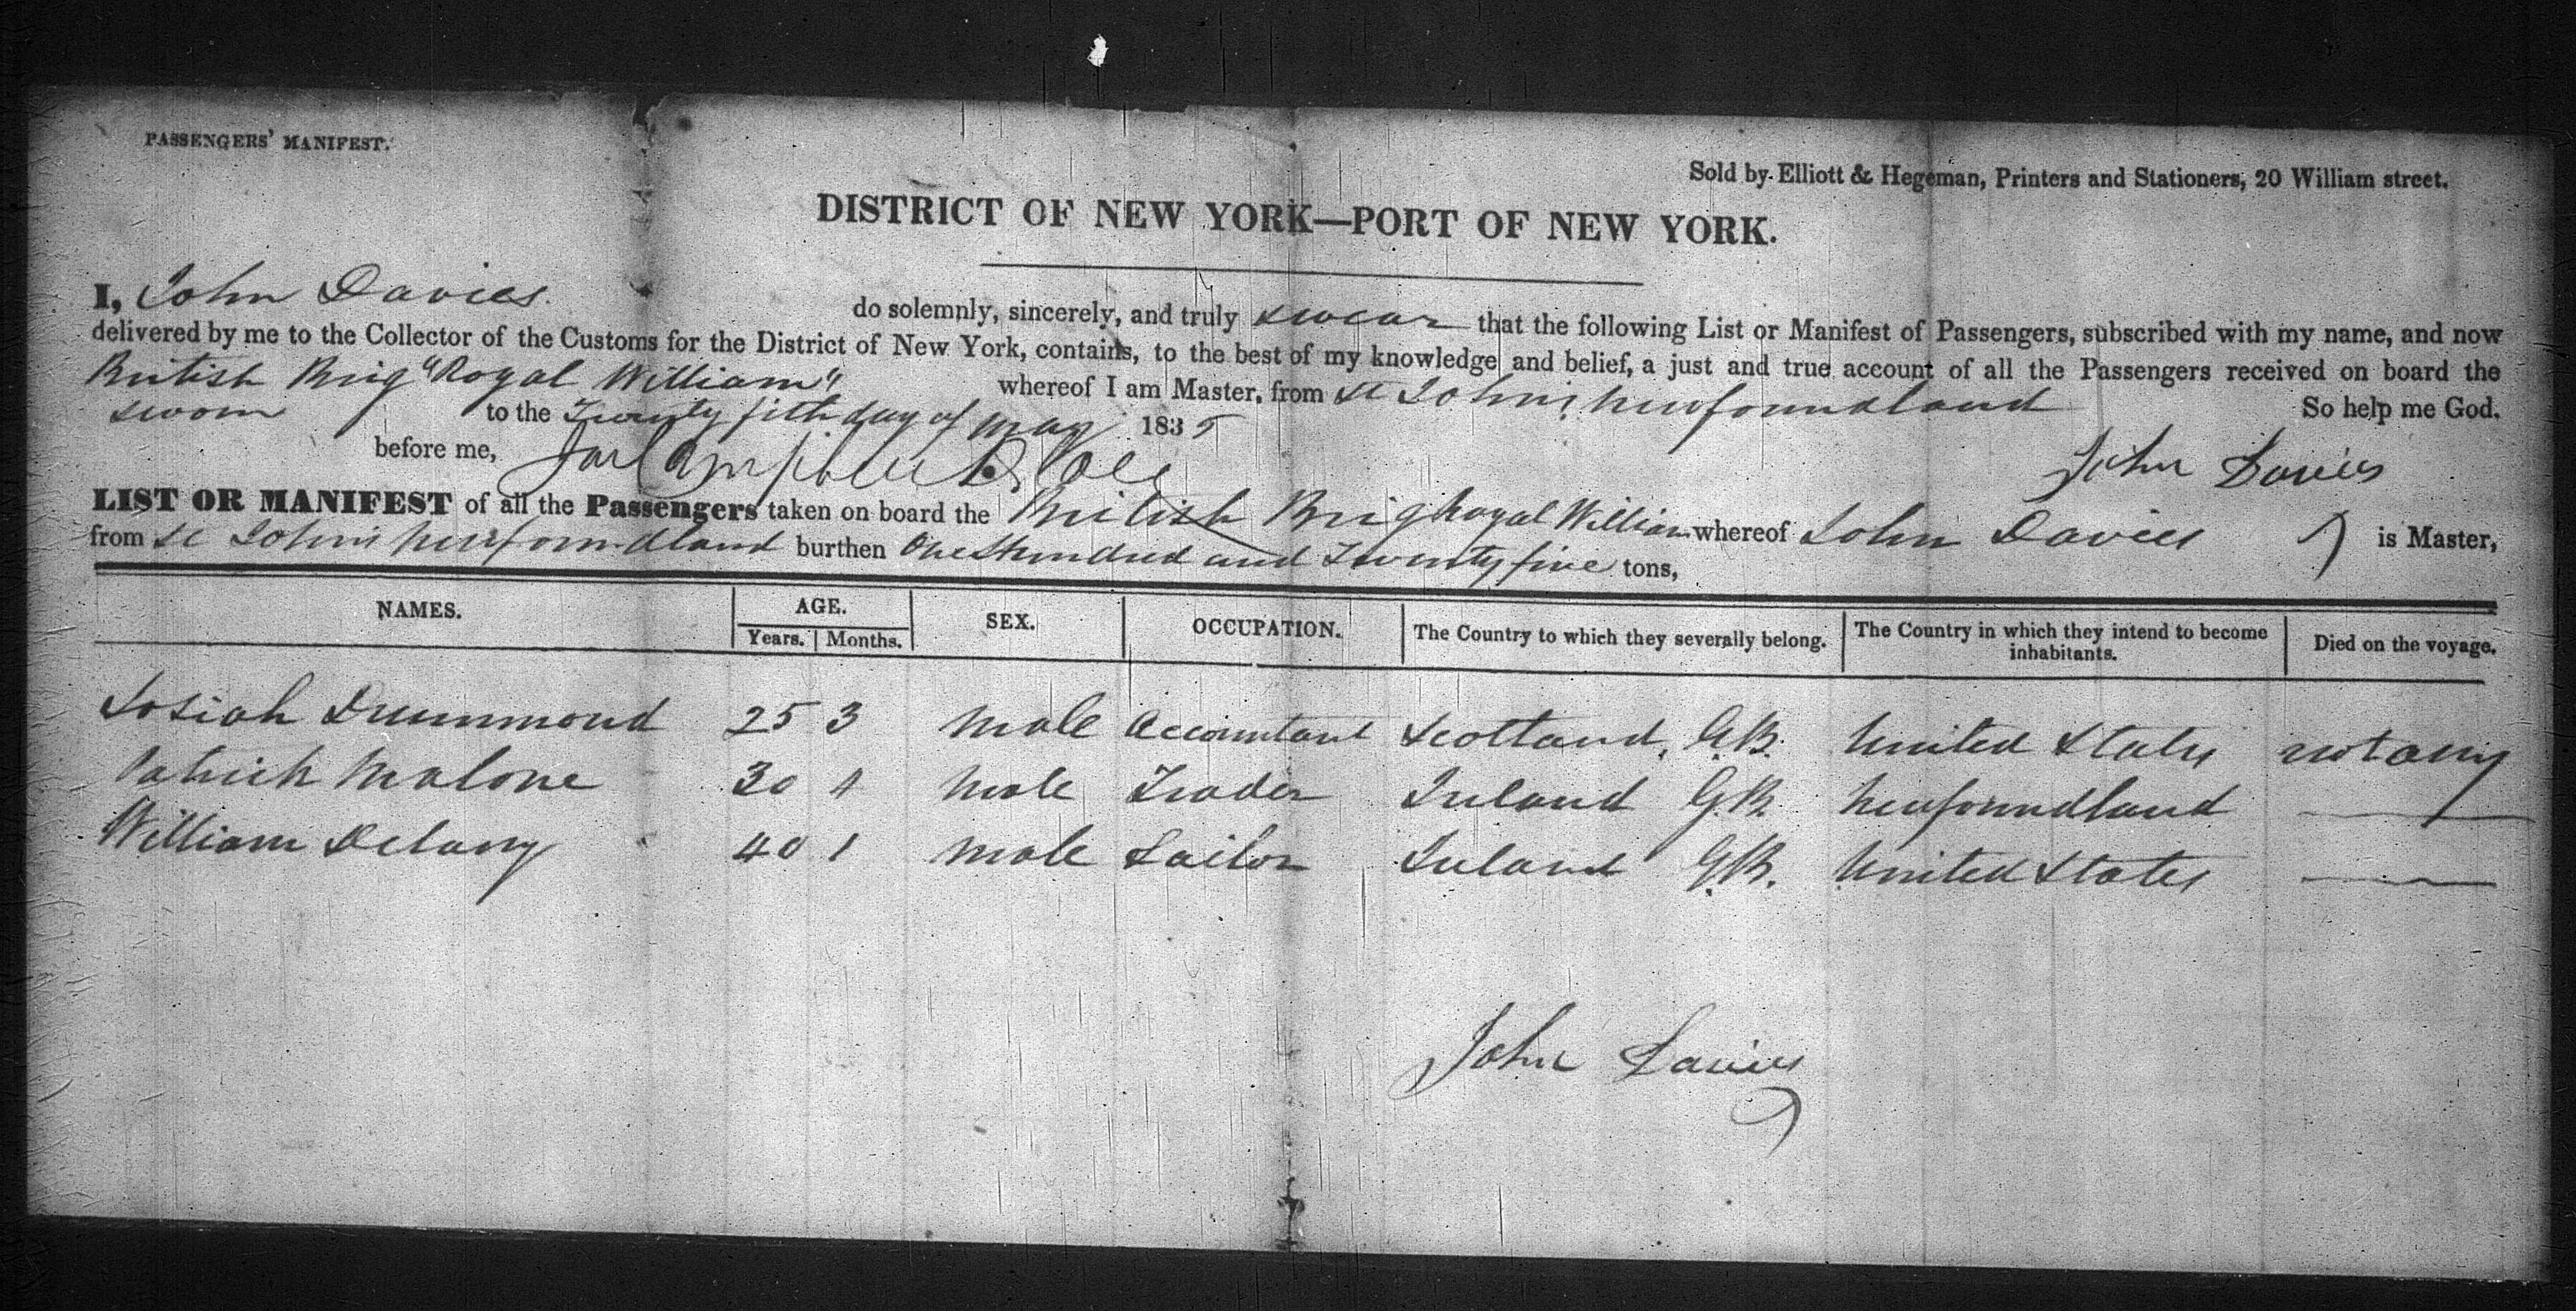 PASSENGERS' MANIFEST.
Sold by Elliott & Hegeman, Printers and Stationers, 20 William street.
DISTRICT OF NEW YORK—PORT OF NEW YORK.
I, John Davies do solemnly, sincerely, and truly swear that the following List or Manifest of Passengers, subscribed with my name, and now
delivered by me to the Collector of the Customs for the District of New York, contains, to the best of my knowledge and belief, a just and true account of all the Passengers received on board the
British Brig "Royal William" whereof I am Master, from St Johns, Newfoundland
sworn to the Twenty fifth day of May 1835 So help me God.
before me, John Davies
LIST OR MANIFEST of all the Passengers taken on board the British Brig Royal William whereof John Davies is Master,
from St Johns Newfoundland burthen One Hundred and Twenty five tons,
NAMES. AGE. SEX. OCCUPATION. The Country to which they severally belong. The Country in which they intend to become inhabitants. Died on the voyage.
Years. Months.
Josiah Drummond 25 3 Male Accountant Scotland, G.B. United States not any
Patrick Malone 30 4 Male Trader Ireland G.B. Newfoundland —
William Delany 40 1 Male Sailor Ireland G.B. United States —
John Davies